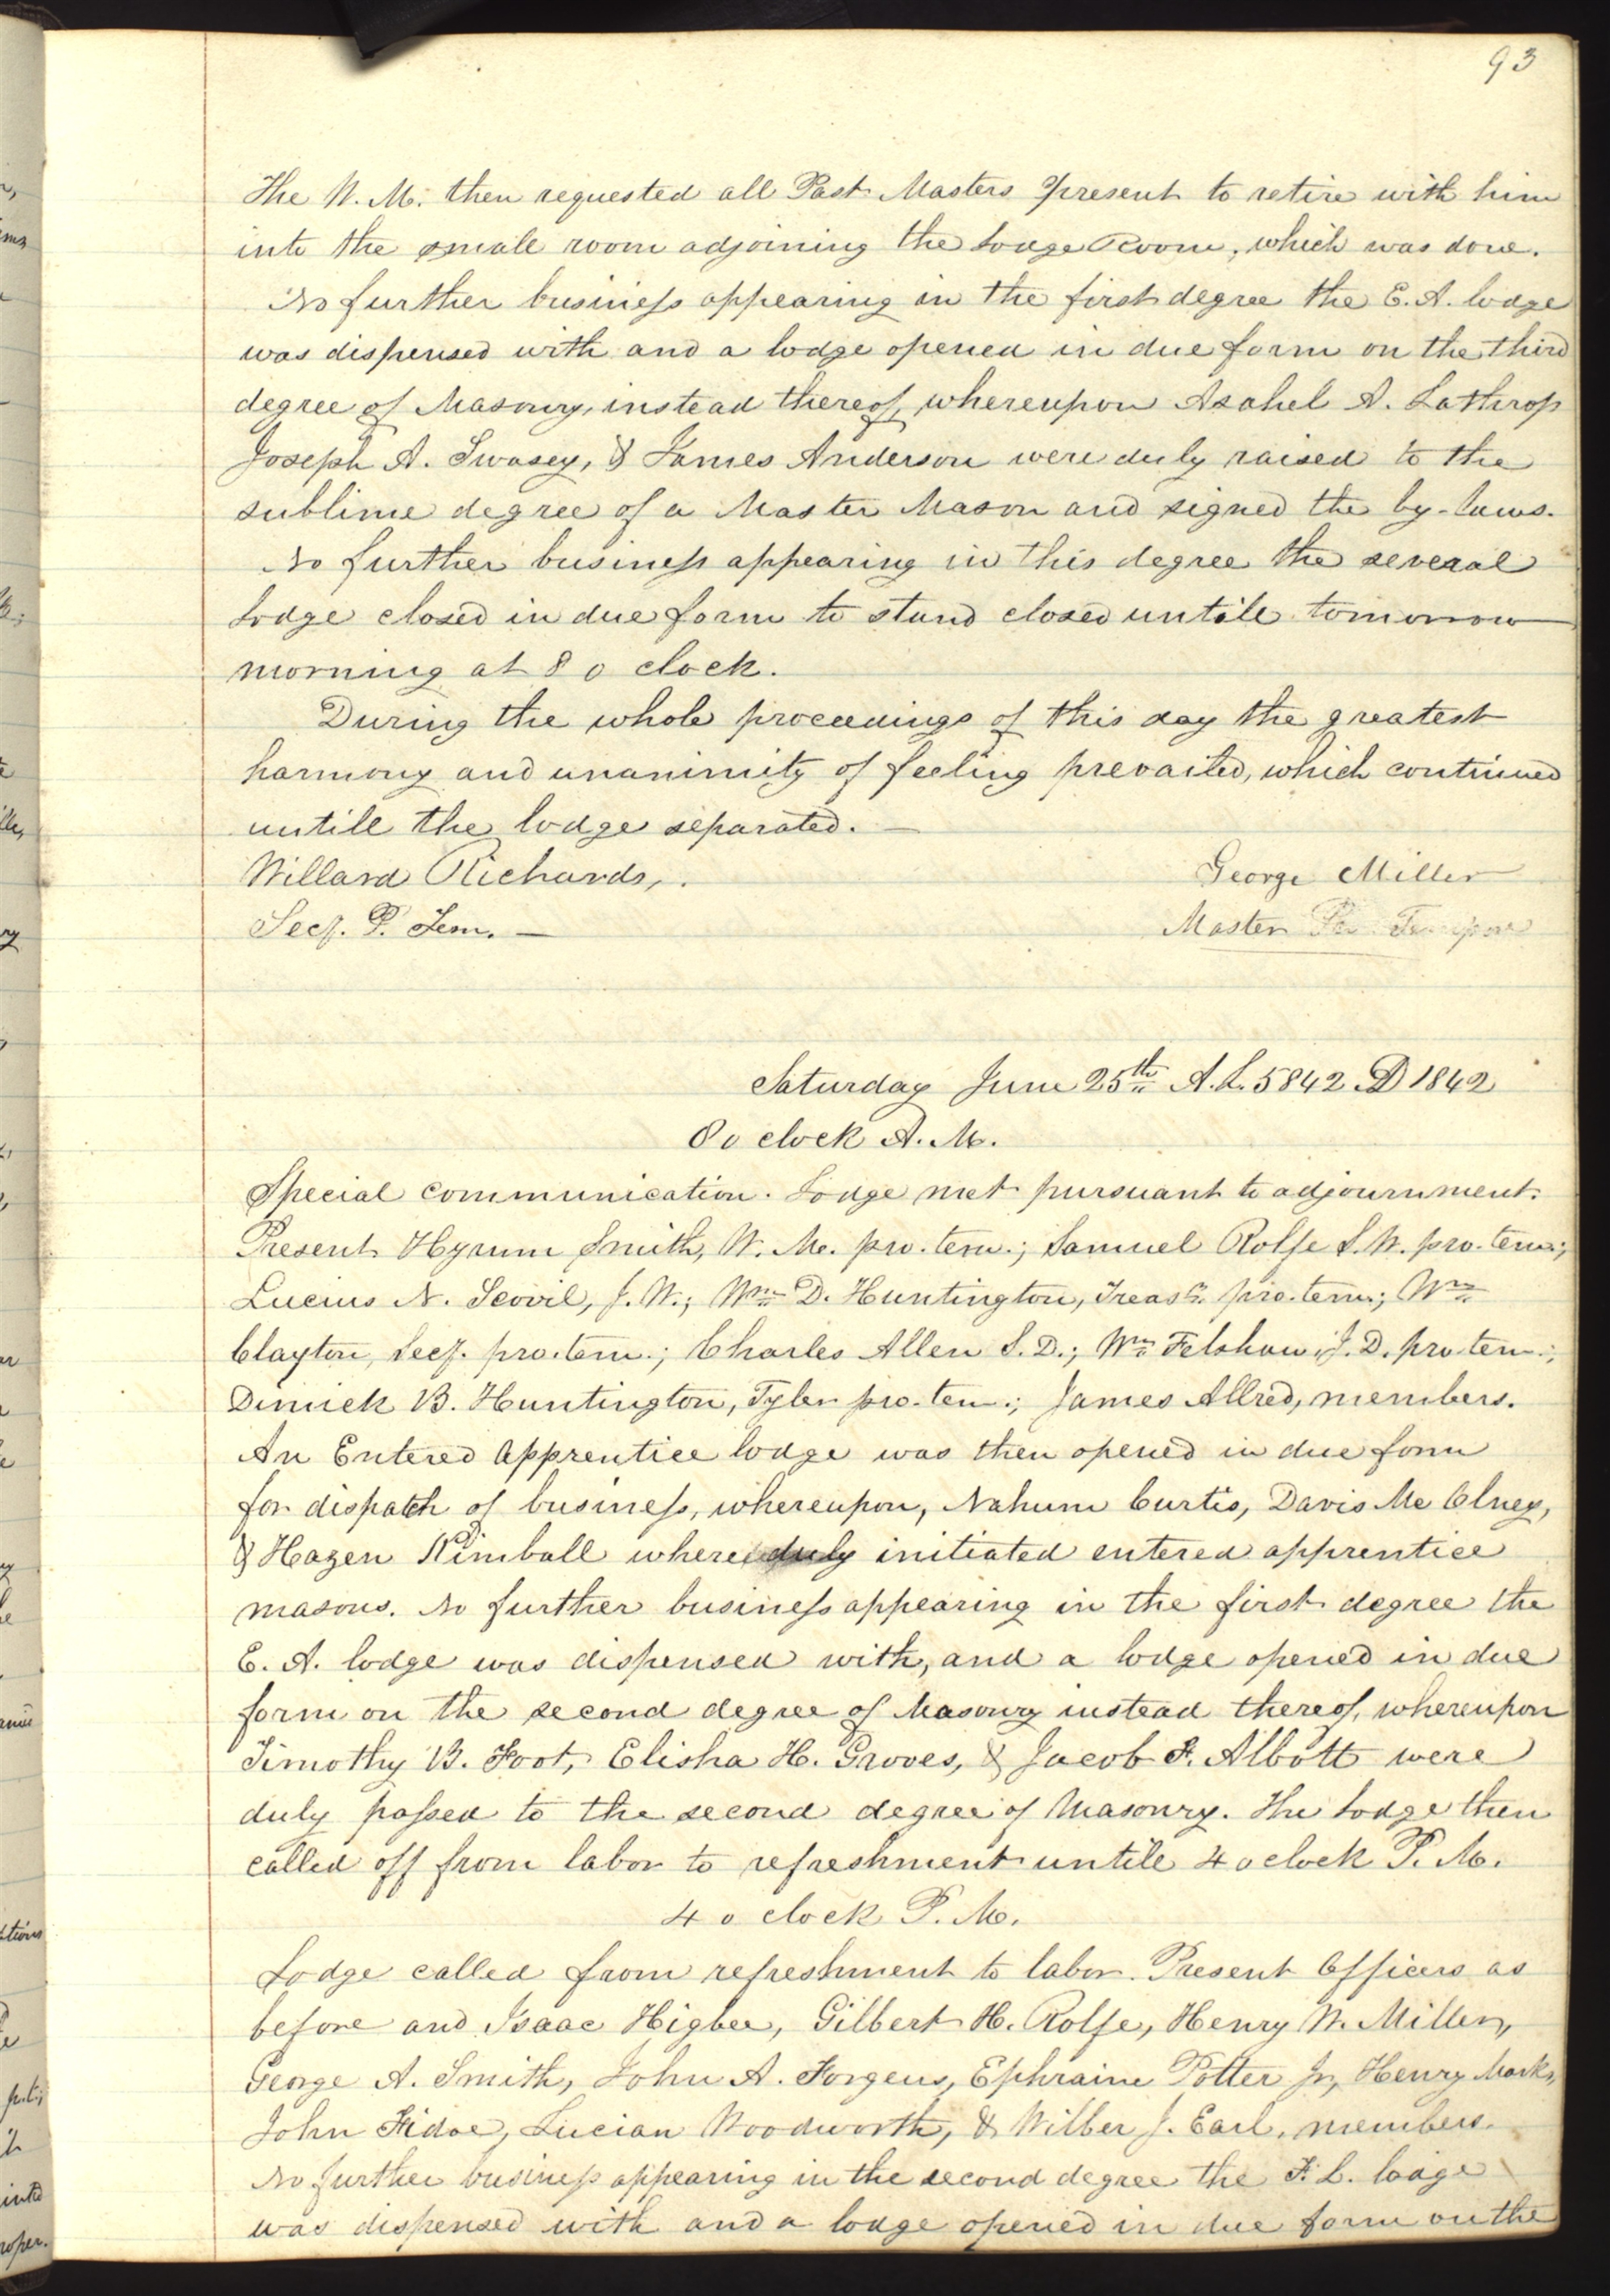 93
The W. M. then requested all Past Masters present to retire with him
into the small room adjoining the Lodge Room, which was done.
No further business appearing in the first degree the E. A. lodge
was dispensed with and a lodge opened in due form on the third
degree of Masonry, instead thereof, whereupon Asahel A. Lathrop
Joseph A. Swasey, & James Anderson were duly raised to the
sublime degree of a Master Mason and signed the by-laws.
No further business appearing in this degree the several
Lodge closed in due form to stand closed untile tomorrow
morning at 8 o clock.
During the whole proceedings of this day the greatest
harmony and unanimity of feeling prevailed, which continued
untill the lodge separated. —
Willard Richards, .
George Miller
Secy. P. Tem. —
Master Pro Tempore
Saturday June 25th A. L. 5842 AD 1842
8 o clock A. M.
Special communication. Lodge met pursuant to adjournment.
Present Hyrum Smith, W. M. pro. tem.; Samuel Rolfe S. W. pro. tem.;
Lucius N. Scovil, J. W.; Wm D. Huntington, Treasr. pro. tem.; Wm
Clayton, Secy. pro. tem.; Charles Allen S. D.; Wm Felshaw, J. D. pro tem.;
Dimick B. Huntington, Tyler pro. tem.; James Allred, members.
An Entered Apprentice lodge was then opened in due form
for dispatch of business, whereupon, Nahum Curtis, Davis Mc Olney,
& Hazen Kimball where duly initiated entered apprentice
masons. No further business appearing in the first degree the
E. A. lodge was dispensed with, and a lodge opened in due
form on the second degree of Masonry instead thereof, whereupon
Timothy B. Foot, Elisha H. Groves, & Jacob F. Abbott were
duly passed to the second degree of Masonry. The Lodge then
called off from labor to refreshment untile 4 o clock P. M.
4 o clock P. M.
Lodge called from refreshment to labor. Present Officers as
before and Isaac Higbee, Gilbert H. Rolfe, Henry W. Miller,
George A. Smith, John A. Forgeus, Ephraim Potter Jr, Henry Marks,
John Fidoe, Lucian Woodworth, & Wilber J. Earl, members.
No further business appearing in the second degree the F. C. lodge
was dispensed with and a lodge opened in due form on the